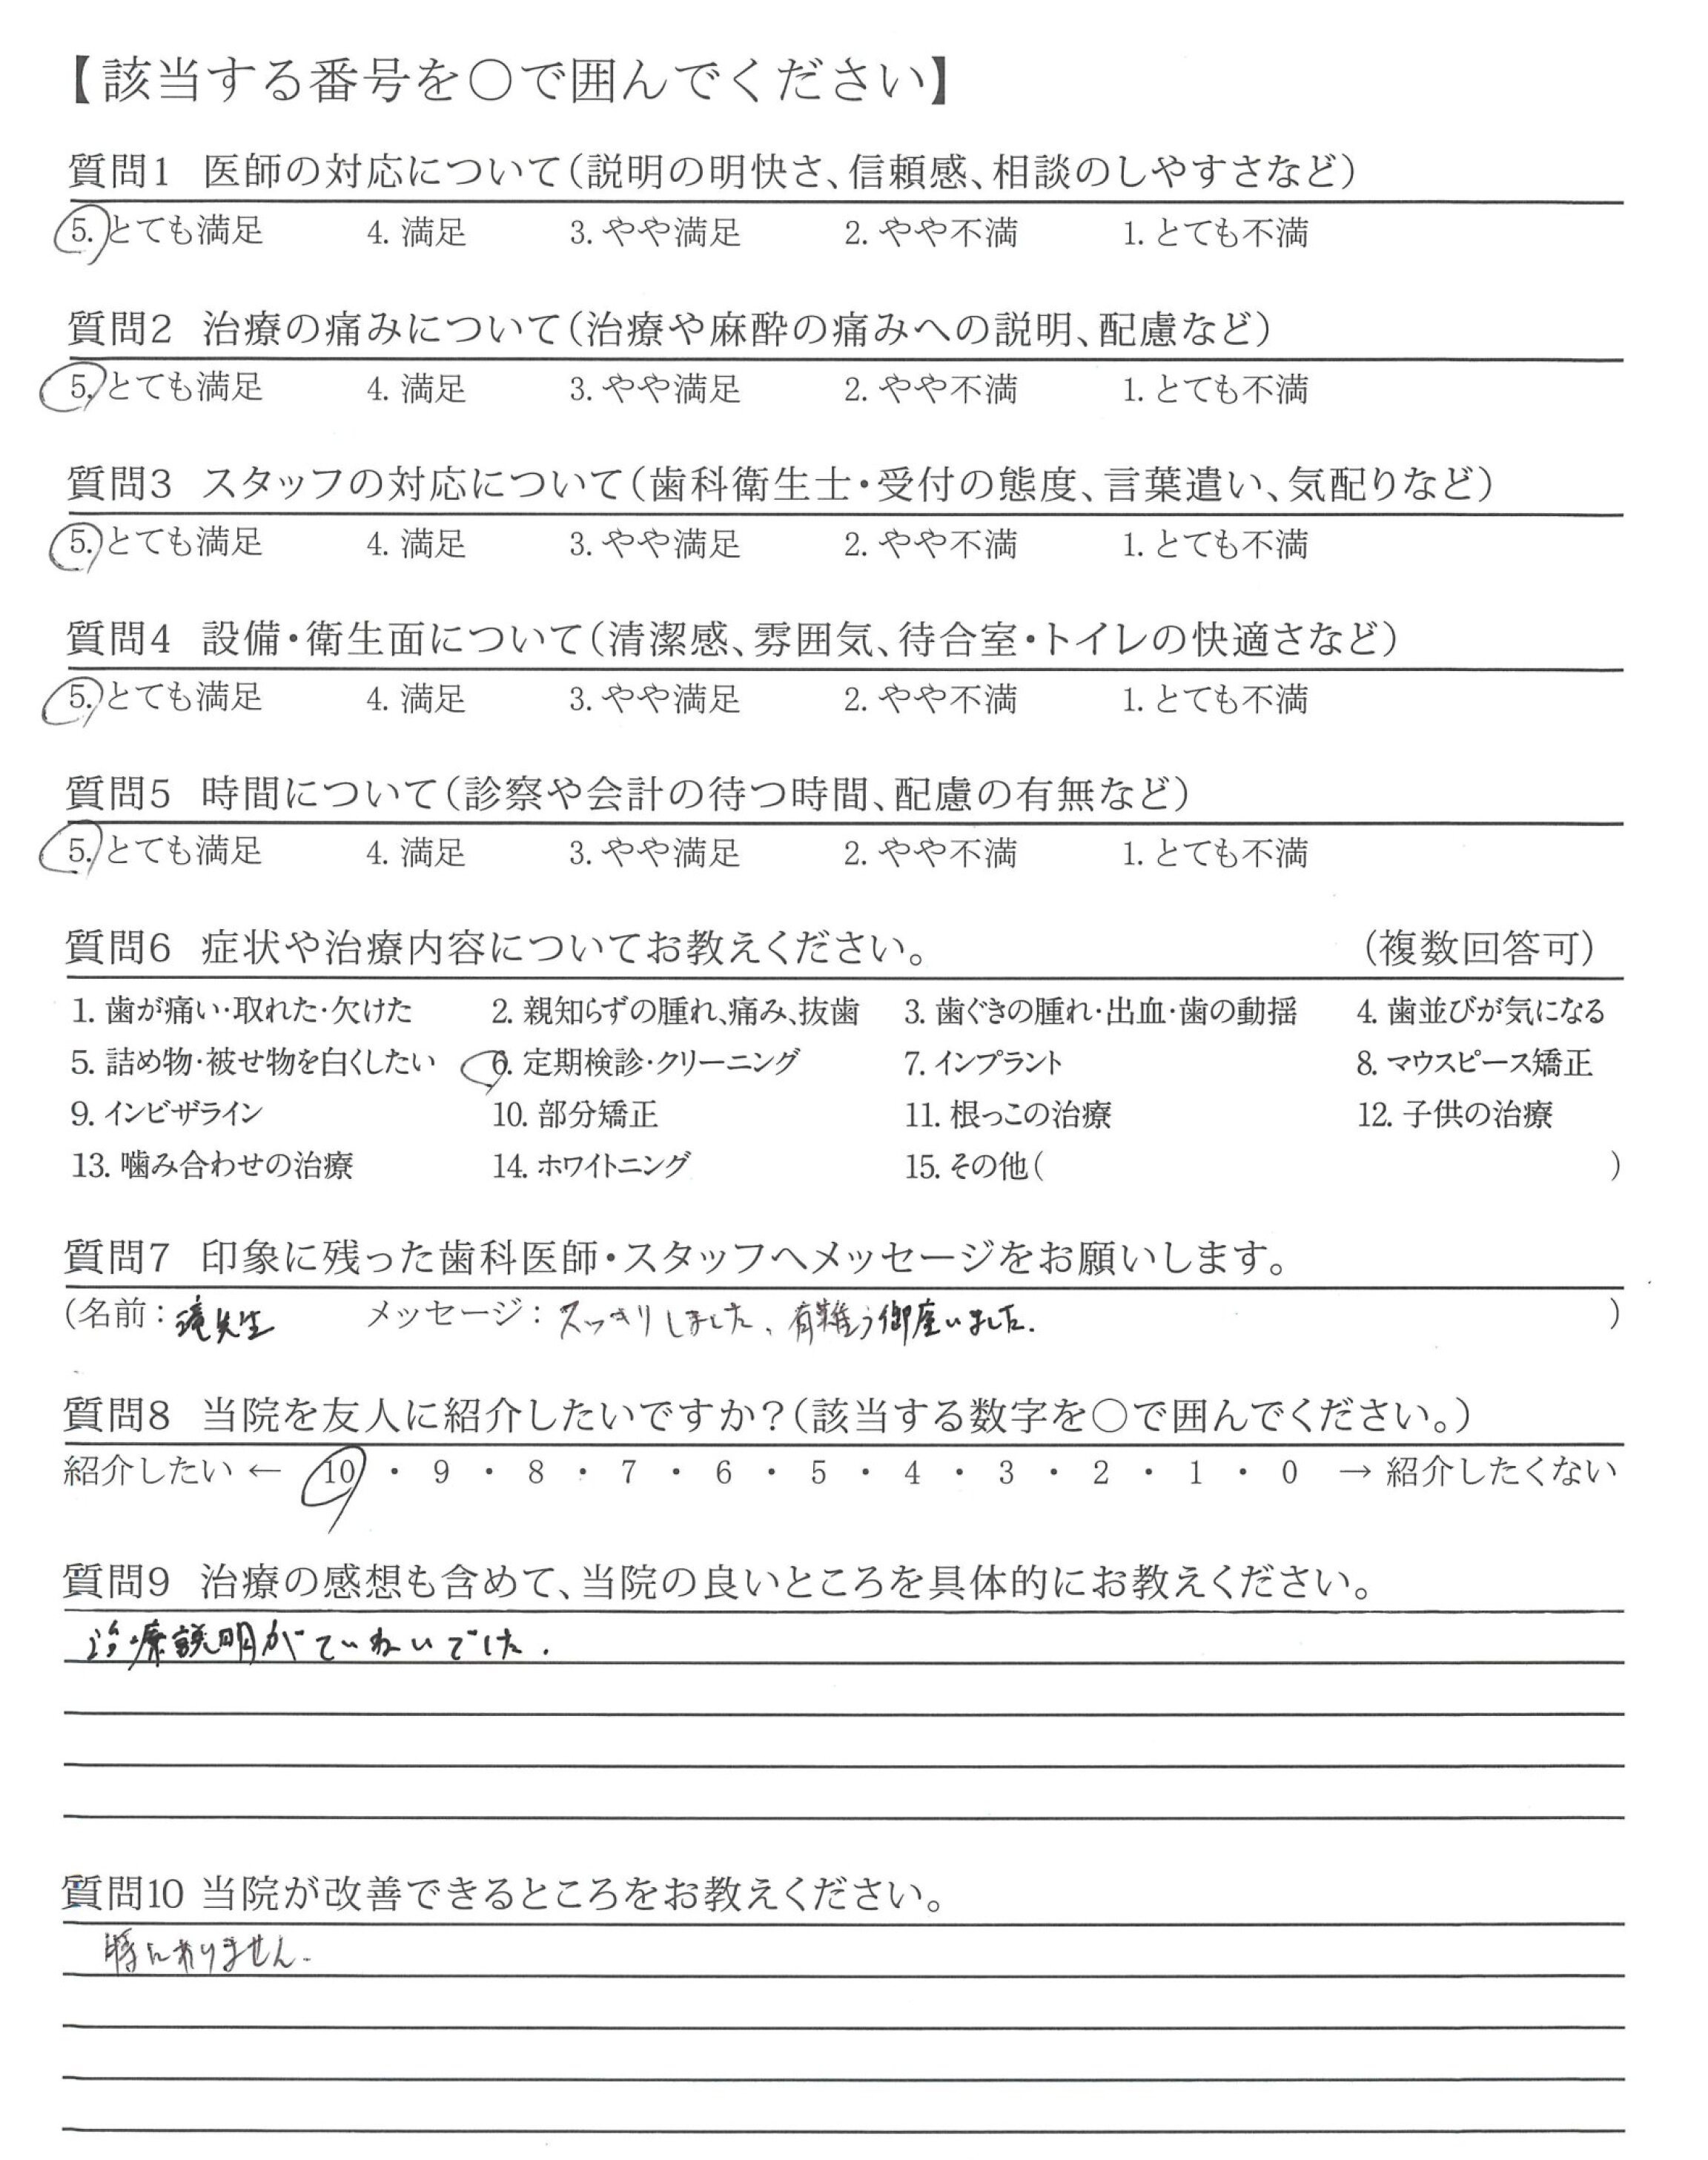 【該当する番号を○で囲んでください】
質問1 医師の対応について(説明の明快さ、信頼感、相談のしやすさなど)
5. とても満足 4. 満足 3. やや満足 2. やや不満 1. とても不満
質問2 治療の痛みについて(治療や麻酔の痛みへの説明、配慮など)
5. とても満足 4. 満足 3. やや満足 2. やや不満 1. とても不満
質問3 スタッフの対応について(歯科衛生士・受付の態度、言葉遣い、気配りなど)
5. とても満足 4. 満足 3. やや満足 2. やや不満 1. とても不満
質問4 設備・衛生面について(清潔感、雰囲気、待合室・トイレの快適さなど)
5. とても満足 4. 満足 3. やや満足 2. やや不満 1. とても不満
質問5 時間について(診察や会計の待つ時間、配慮の有無など)
5. とても満足 4. 満足 3. やや満足 2. やや不満 1. とても不満
質問6 症状や治療内容についてお教えください。 (複数回答可)
1. 歯が痛い・取れた・欠けた 2. 親知らずの腫れ、痛み、抜歯 3. 歯ぐきの腫れ・出血・歯の動揺 4. 歯並びが気になる
5. 詰め物・被せ物を白くしたい 6. 定期検診・クリーニング 7. インプラント 8. マウスピース矯正
9. インビザライン 10. 部分矯正 11. 根っこの治療 12. 子供の治療
13. 噛み合わせの治療 14. ホワイトニング 15. その他( )
質問7 印象に残った歯科医師・スタッフへメッセージをお願いします。
(名前: 先生 メッセージ: スッキリしました、有難う御座いました. )
質問8 当院を友人に紹介したいですか?(該当する数字を○で囲んでください。)
紹介したい ← 10 ・ 9 ・ 8 ・ 7 ・ 6 ・ 5 ・ 4 ・ 3 ・ 2 ・ 1 ・ 0 → 紹介したくない
質問9 治療の感想も含めて、当院の良いところを具体的にお教えください。
治療説明がていねいでした.
質問10 当院が改善できるところをお教えください。
特にありません.